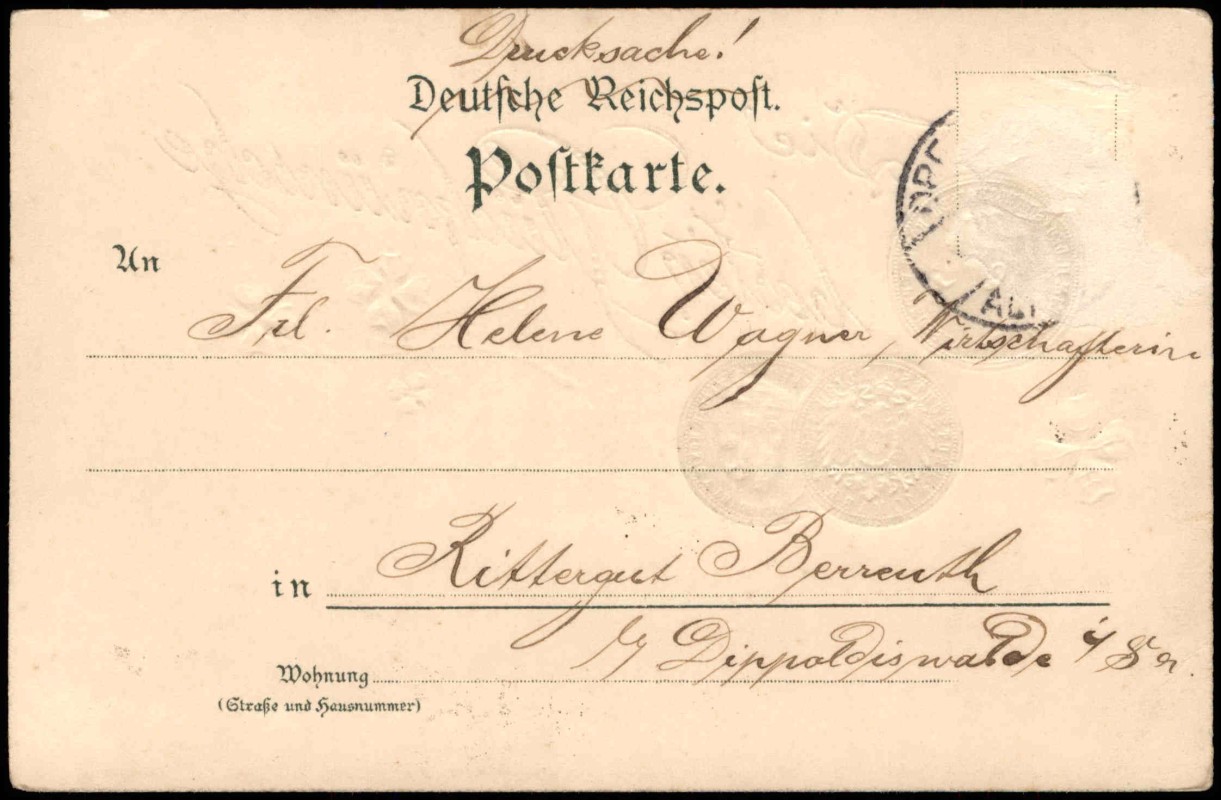 Drucksache!
Deutsche Reichspost.
Postkarte.
An
Frl. Helene Wagner, Wirtschafterin
in Rittergut Berreuth
b/ Dippoldiswalde i/ Sa.
Wohnung
(Straße und Hausnummer)